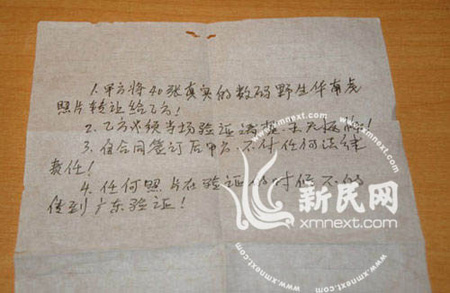 1. 甲方将40张真实的数码野生华南虎
照片转让给乙方!
2. 乙方必须当场验证
3. 自合同签订后甲方不付任何法律
责任!
4. 任何照片在验证的时候不的
传到广东验证!
新民网
xmnext.com
www.xmnext.com
www.xmnext.com